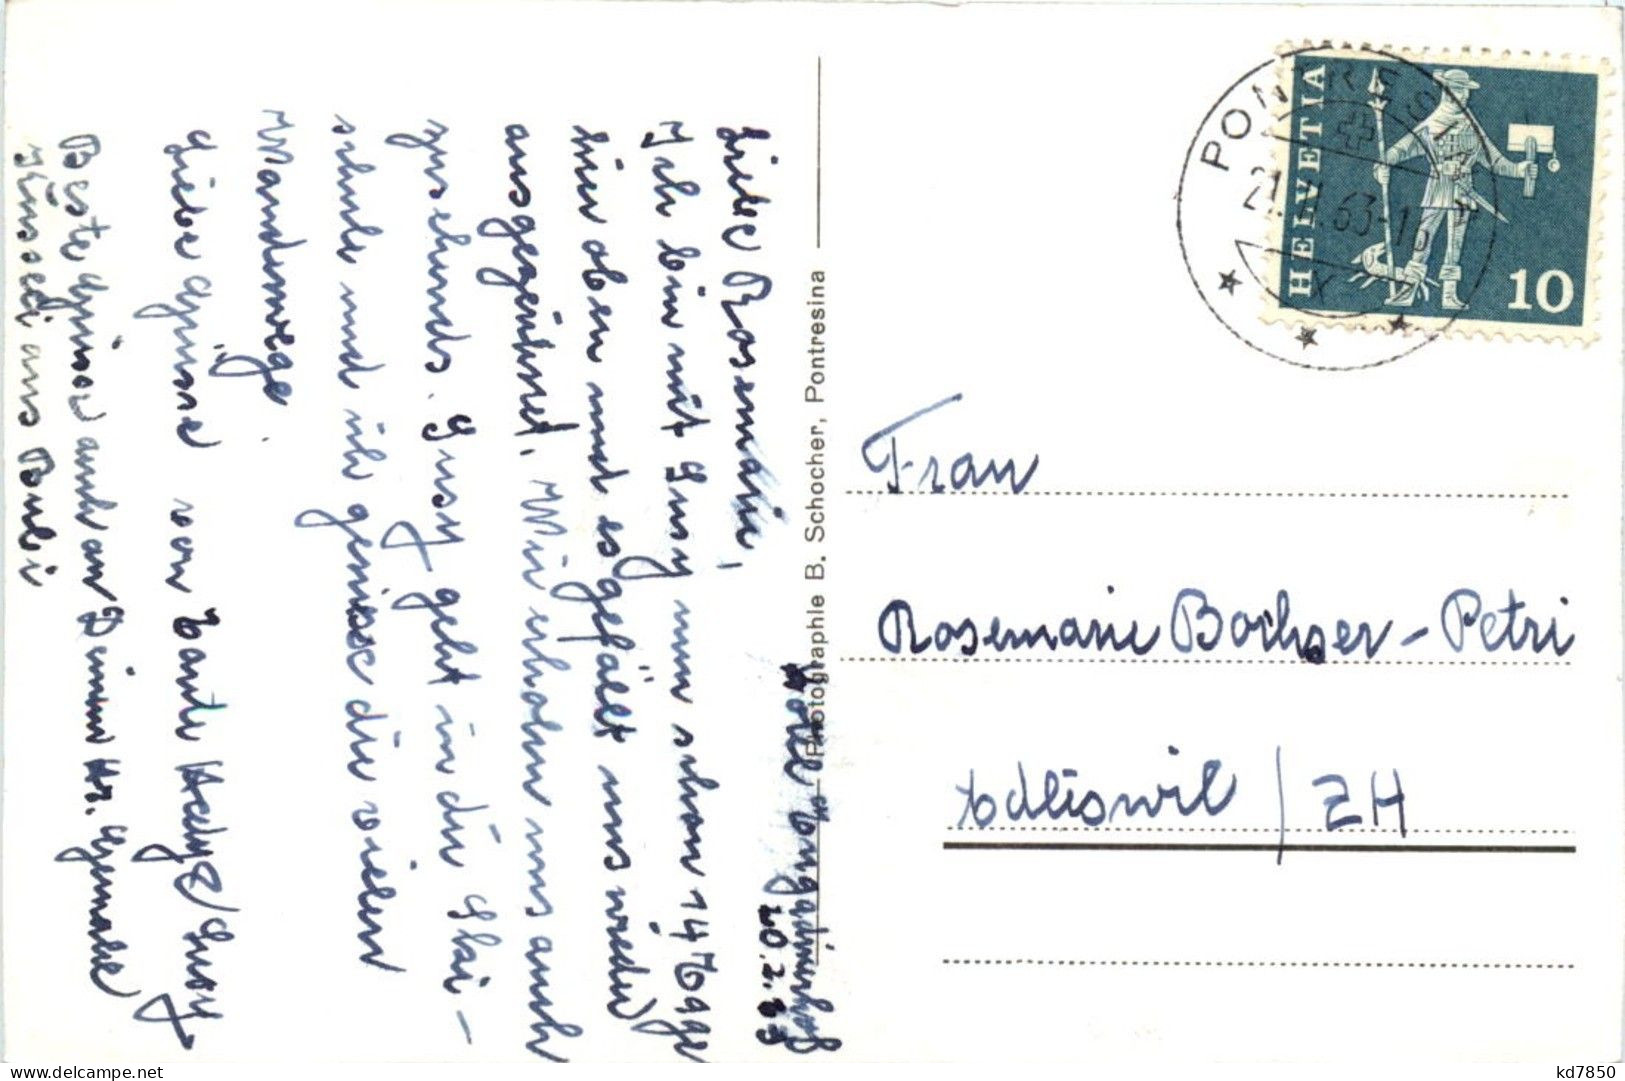 Hotel Engadinerhof
20.2.63
Liebe Rosemarie,
Ich bin mit Susy nun schon 14 Tage
hier oben und es gefällt uns wieder
ausgezeichnet. Wir erholen uns auch
zusehends. Susy geht in die Ski-
schule und ich geniesse die vielen
Wanderwege.
Liebe Grüsse von Tante Hedy & Susy
Beste Grüsse auch an Deinen Hr. Gemahl
aus
Photographie B. Schocher, Pontresina
PONTRESINA
21. II. 63-16
HELVETIA
10
Frau
Rosemarie Bochser-Petri
Adliswil / ZH
kd7850